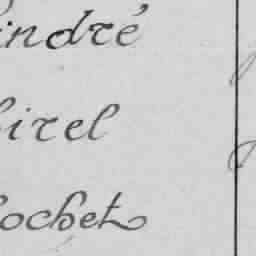 André
irel
ochet